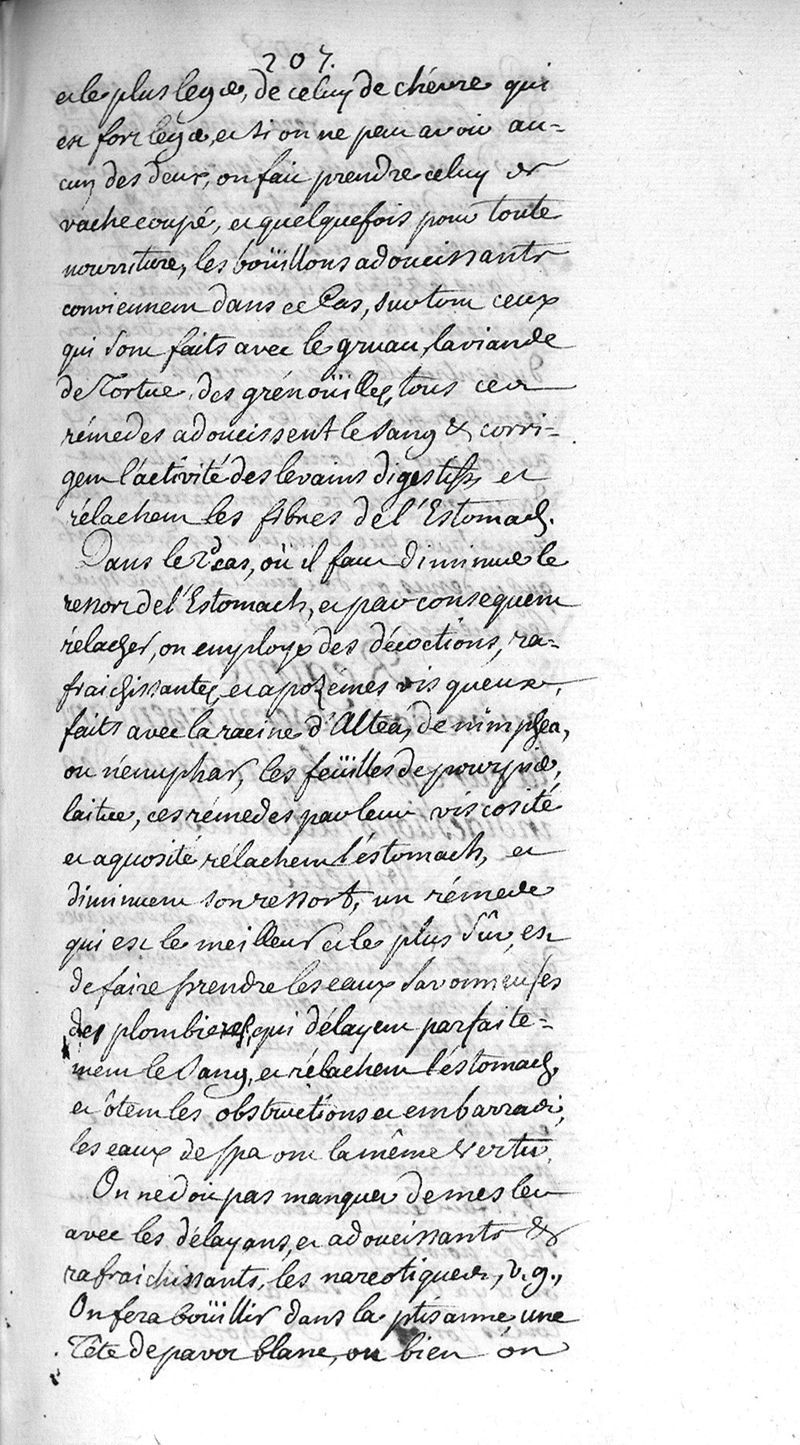 207.
et le plus leger, de celuy de chévre qui
est fort leger, et si on ne peut avoir au=
cun des deux, on fait prendre celuy de
vache coupé, et quelquefois pour toute
nourriture, les boüillons adoucissants
conviennent dans ce Cas, surtout ceux
qui sont faits avec le gruau, la viande
de Tortue, des grénoüilles, tous ces
rémedes adoucissent le sang & corri=
gent l'activité des levains digestifs, et
rélachent les fibres de l'Estomach.
Dans le 2d cas, où il faut diminuer le
ressort de l'Estomach, et par consequent
rélacher, on employe des décoctions, ra=
fraichissantes, et apozémes visqueux,
faits avec la racine d'Altea, de nimphea,
ou nénuphar, les feüilles de pourpier,
laitue, ces rémedes par leur viscosité
et aquosité rélachent l'éstomach, et
diminuent son ressort, un rémede
qui est le meilleur et le plus sûr, est
de faire prendre les eaux savonneuses
des plombieres, qui délayent parfaite=
ment le sang, et rélachent l'éstomach,
et ôtent les obstructions et embarras,
les eaux de spa ont la même vertu.
On ne doit pas manquer de mesler
avec les délayans, et adoucissants &
rafraichissants, les narcotiques, v. g.,
On fera boüillir dans la ptisanne une
Tête de pavot blanc, ou bien on